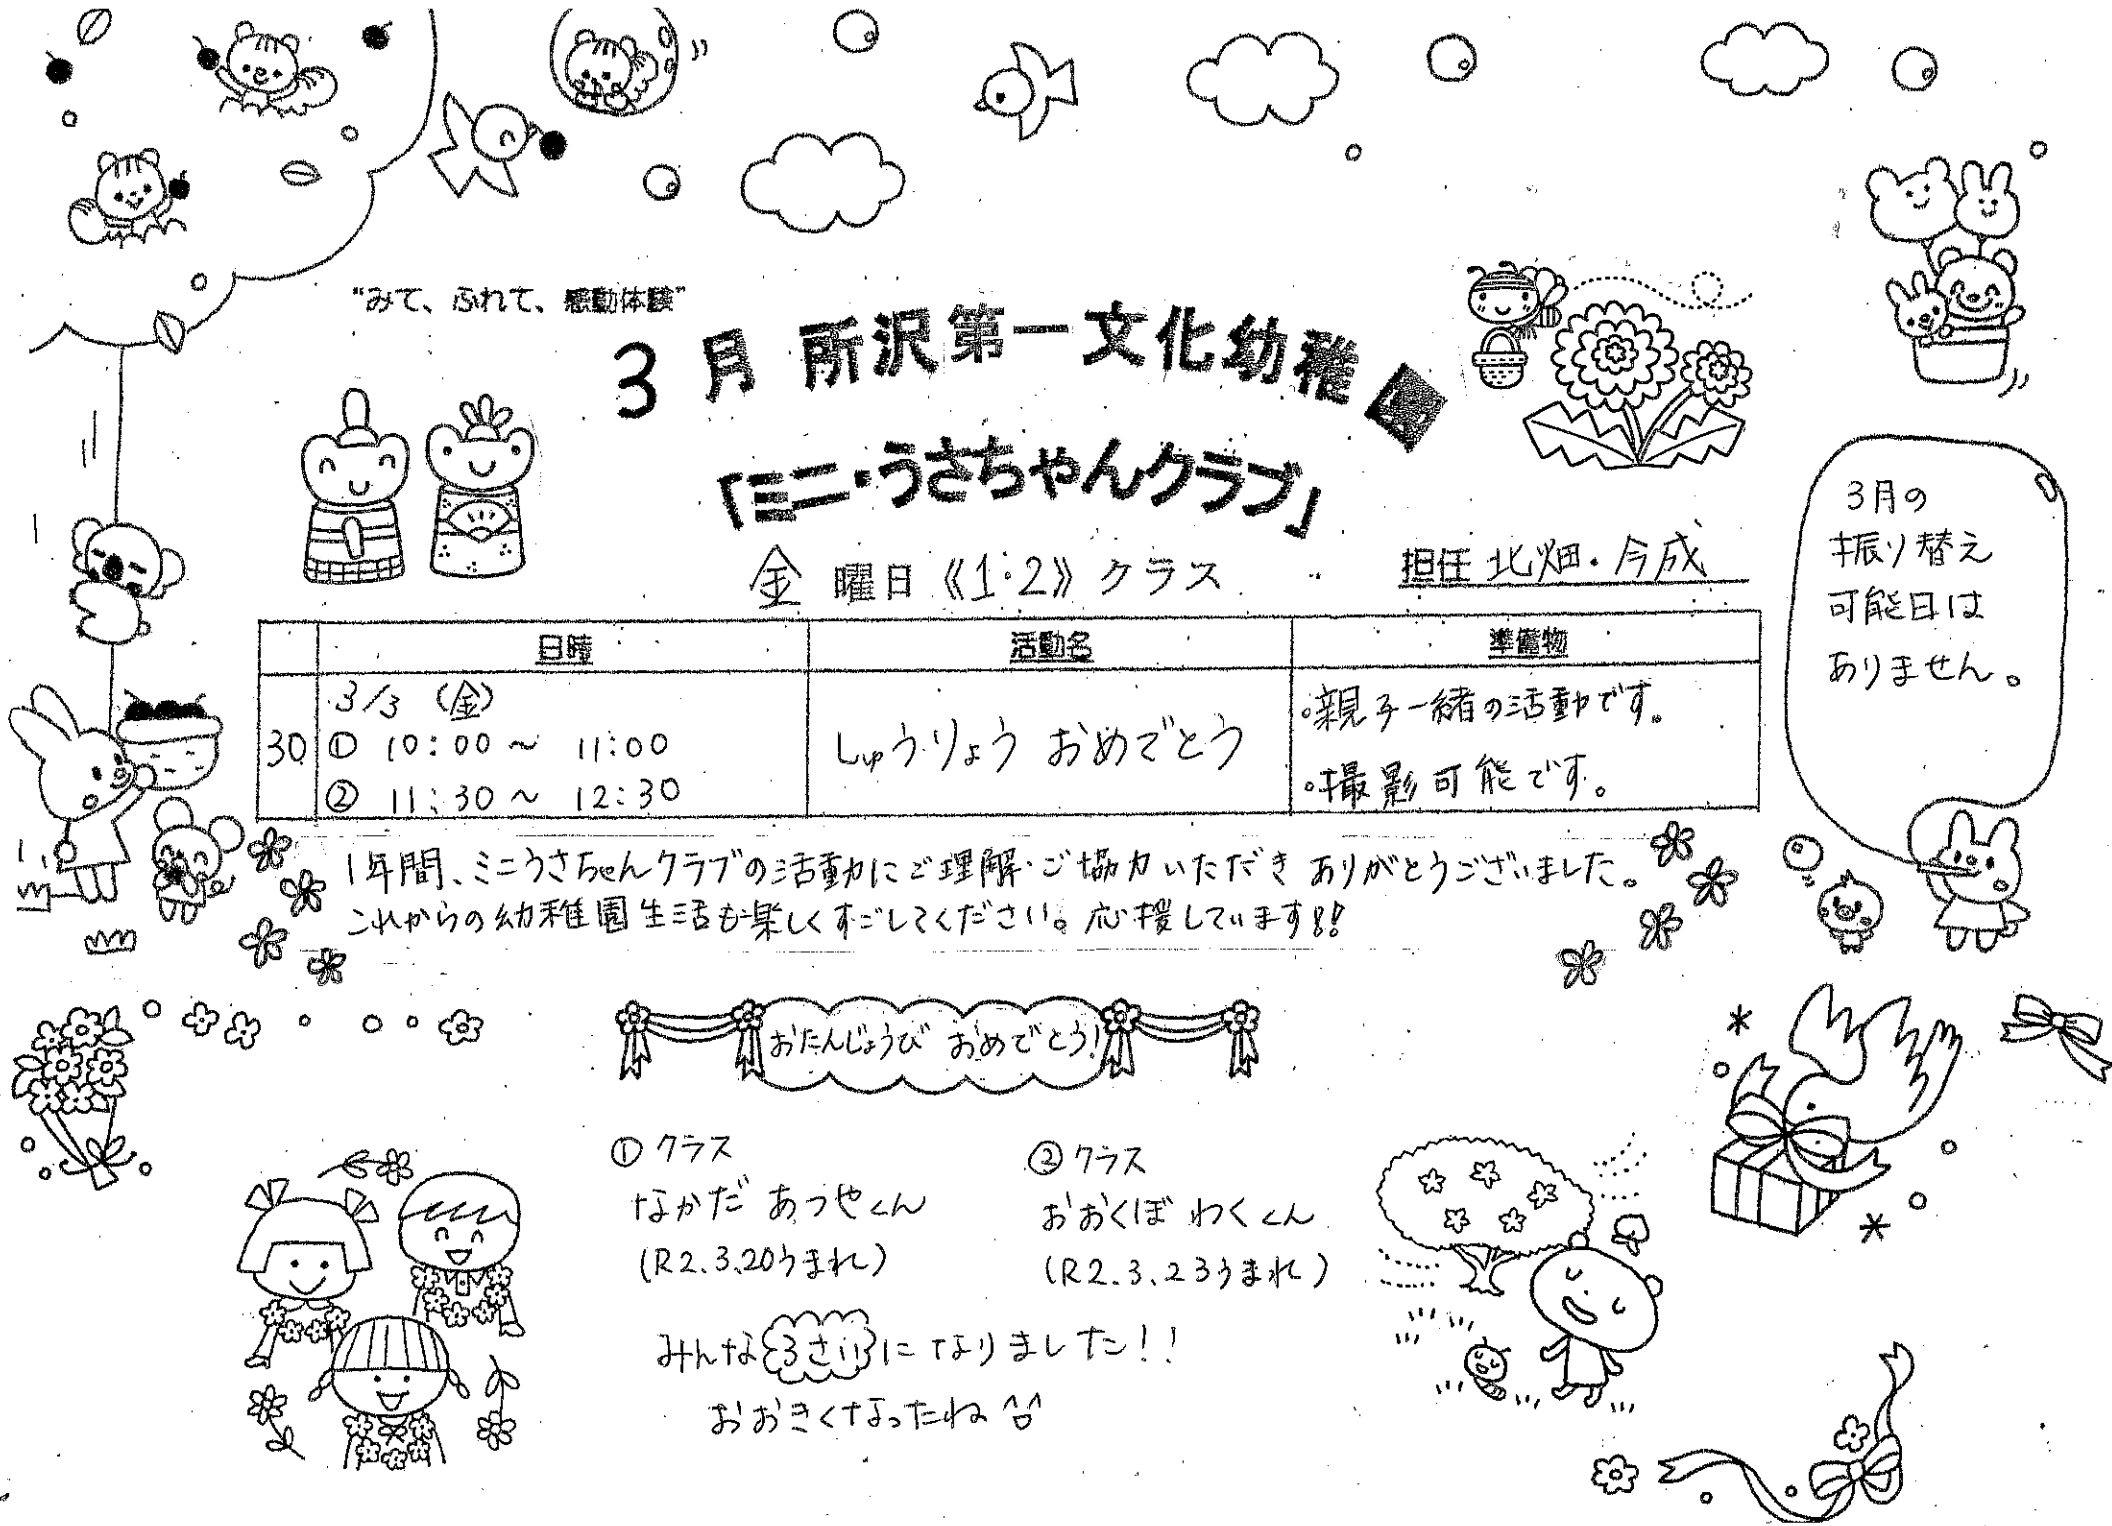 “みて、ふれて、感動体験”
3月 所沢第一文化幼稚園
「ミニ・うさちゃんクラブ」
金 曜日 《1・2》 クラス
担任 北畑・今成
3月の
振り替え
可能日は
ありません。
日時 活動名 準備物
30
3/3 (金)
① 10:00～ 11:00
② 11:30～ 12:30
しゅうりょう おめでとう
・親子一緒の活動です。
・撮影可能です。
1年間、ミニうさちゃんクラブの活動にご理解・ご協力いただき ありがとうございました。
これからの幼稚園生活も楽しくすごしてください。応援しています!!
おたんじょうび おめでとう!
①クラス
なかだ あつやくん
(R2.3.20うまれ)
②クラス
おおくぼ わくくん
(R2.3.23うまれ)
みんな3さいになりました!!
おおきくなったね^o^